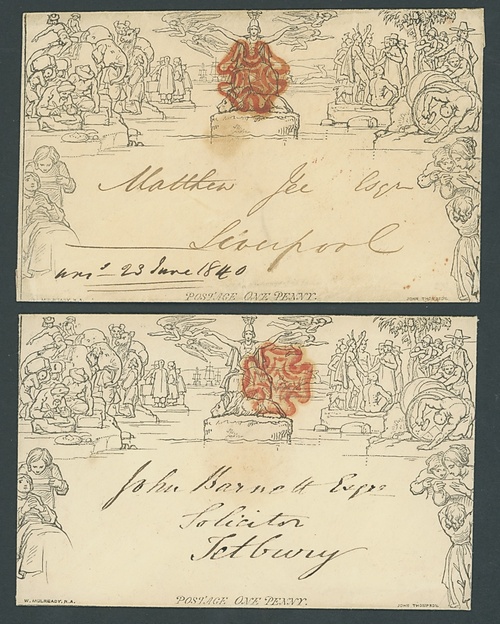 Matthew Jee Esqr
Liverpool
ansd 23 June 1840
POSTAGE ONE PENNY.
JOHN THOMPSON.
John Barnett Esqre
Solicitor
Tetbury
W. MULREADY, R.A.
POSTAGE ONE PENNY.
JOHN THOMPSON.